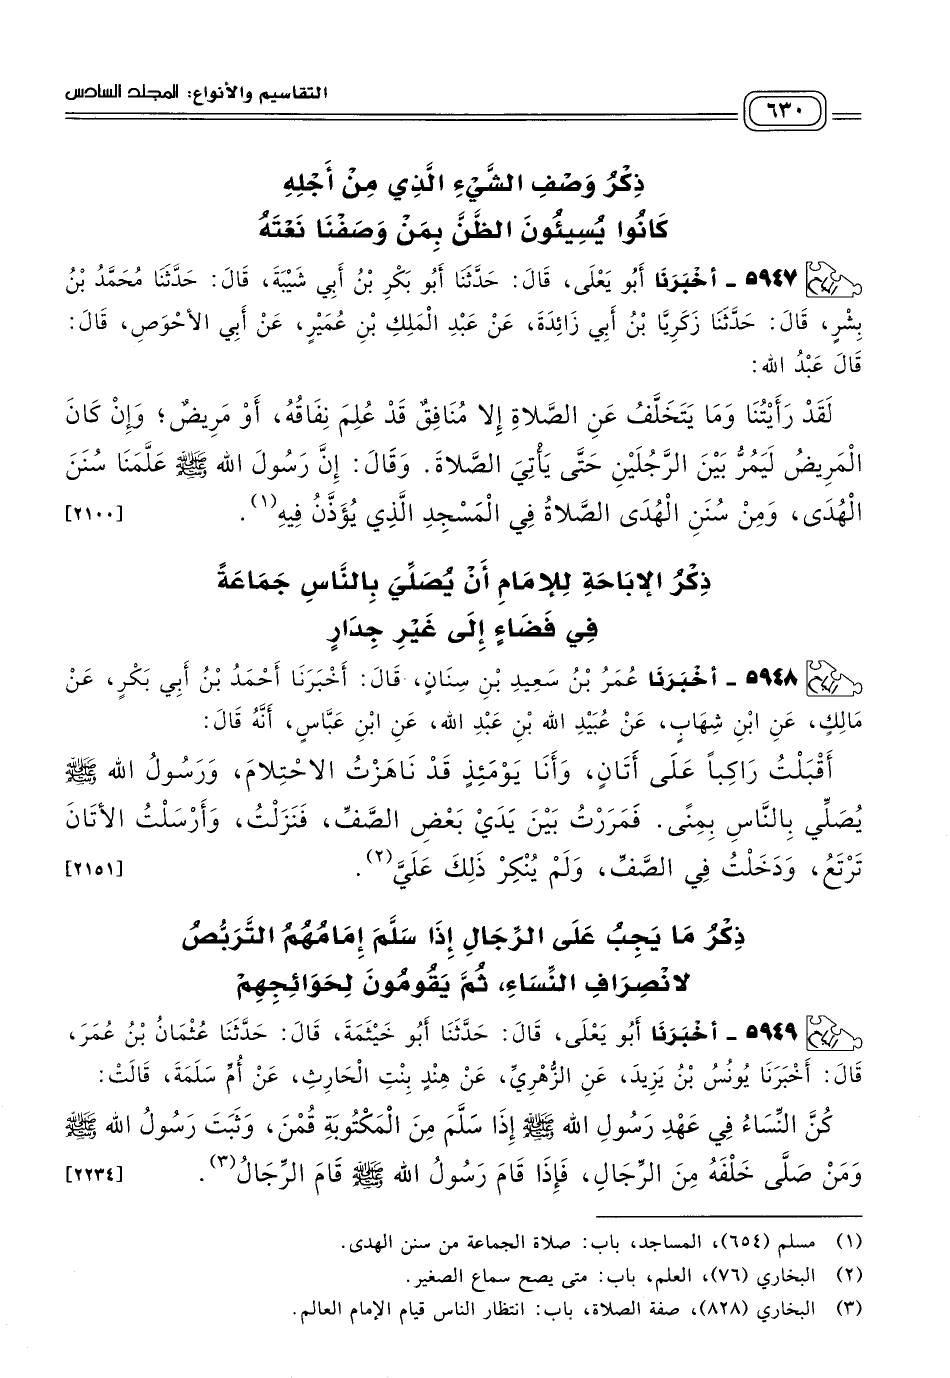 التقاسيم والأنواع: المجلد السادس
٦٣٠
ذِكْرُ وَصْفِ الشَّيْءِ الَّذِي مِنْ أَجْلِهِ
كَانُوا يُسِيئُونَ الظَّنَّ بِمَنْ وَصَفْنَا نَعْتَهُ
٥٩٤٧ - أَخْبَرَنَا أَبُو يَعْلَى، قَالَ: حَدَّثَنَا أَبُو بَكْرِ بْنُ أَبِي شَيْبَةَ، قَالَ: حَدَّثَنَا مُحَمَّدُ بْنُ
بِشْرٍ، قَالَ: حَدَّثَنَا زَكَرِيَّا بْنُ أَبِي زَائِدَةَ، عَنْ عَبْدِ الْمَلِكِ بْنِ عُمَيْرٍ، عَنْ أَبِي الأَحْوَصِ، قَالَ:
قَالَ عَبْدُ الله:
لَقَدْ رَأَيْتُنَا وَمَا يَتَخَلَّفُ عَنِ الصَّلاةِ إِلا مُنَافِقٌ قَدْ عُلِمَ نِفَاقُهُ، أَوْ مَرِيضٌ؛ وَإِنْ كَانَ
الْمَرِيضُ لَيَمُرُّ بَيْنَ الرَّجُلَيْنِ حَتَّى يَأْتِيَ الصَّلاةَ. وَقَالَ: إِنَّ رَسُولَ الله ﷺ عَلَّمَنَا سُنَنَ
الْهُدَى، وَمِنْ سُنَنِ الْهُدَى الصَّلاةُ فِي الْمَسْجِدِ الَّذِي يُؤَذَّنُ فِيهِ(١). [٢١٠٠]
ذِكْرُ الإبَاحَةِ لِلإمَامِ أَنْ يُصَلِّيَ بِالنَّاسِ جَمَاعَةً
فِي فَضَاءٍ إِلَى غَيْرِ جِدَارٍ
٥٩٤٨ - أَخْبَرَنَا عُمَرُ بْنُ سَعِيدِ بْنِ سِنَانٍ، قَالَ: أَخْبَرَنَا أَحْمَدُ بْنُ أَبِي بَكْرٍ، عَنْ
مَالِكٍ، عَنِ ابْنِ شِهَابٍ، عَنْ عُبَيْدِ الله بْنِ عَبْدِ الله، عَنِ ابْنِ عَبَّاسٍ، أَنَّهُ قَالَ:
أَقْبَلْتُ رَاكِباً عَلَى أَتَانٍ، وَأَنَا يَوْمَئِذٍ قَدْ نَاهَزْتُ الاحْتِلامَ، وَرَسُولُ الله ﷺ
يُصَلِّي بِالنَّاسِ بِمِنًى. فَمَرَرْتُ بَيْنَ يَدَيْ بَعْضِ الصَّفِّ، فَنَزَلْتُ، وَأَرْسَلْتُ الأتَانَ
تَرْتَعُ، وَدَخَلْتُ فِي الصَّفِّ، وَلَمْ يُنْكِرْ ذَلِكَ عَلَيَّ(٢). [٢١٥١]
ذِكْرُ مَا يَجِبُ عَلَى الرِّجَالِ إِذَا سَلَّمَ إِمَامُهُمُ التَّرَبُّصُ
لانْصِرَافِ النِّسَاءِ، ثُمَّ يَقُومُونَ لِحَوَائِجِهِمْ
٥٩٤٩ - أَخْبَرَنَا أَبُو يَعْلَى، قَالَ: حَدَّثَنَا أَبُو خَيْثَمَةَ، قَالَ: حَدَّثَنَا عُثْمَانُ بْنُ عُمَرَ،
قَالَ: أَخْبَرَنَا يُونُسُ بْنُ يَزِيدَ، عَنِ الزُّهْرِيِّ، عَنْ هِنْدٍ بِنْتِ الْحَارِثِ، عَنْ أُمِّ سَلَمَةَ، قَالَتْ:
كُنَّ النِّسَاءُ فِي عَهْدِ رَسُولِ الله ﷺ إِذَا سَلَّمَ مِنَ الْمَكْتُوبَةِ قُمْنَ، وَثَبَتَ رَسُولُ الله ﷺ
وَمَنْ صَلَّى خَلْفَهُ مِنَ الرِّجَالِ، فَإِذَا قَامَ رَسُولُ الله ﷺ قَامَ الرِّجَالُ(٣). [٢٢٣٤]
(١) مسلم (٦٥٤)، المساجد، باب: صلاة الجماعة من سنن الهدى.
(٢) البخاري (٧٦)، العلم، باب: متى يصح سماع الصغير.
(٣) البخاري (٨٢٨)، صفة الصلاة، باب: انتظار الناس قيام الإمام العالم.